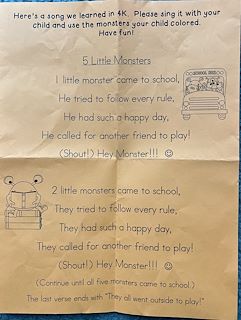 Here's a song we learned in 4K. Please sing it with your
child and use the monsters your child colored.
Have fun!
5 Little Monsters
1 little monster came to school,
He tried to follow every rule,
He had such a happy day,
He called for another friend to play!
(Shout!) Hey Monster!!! ☺
SCHOOL BUS
2 little monsters came to school,
They tried to follow every rule,
They had such a happy day,
They called for another friend to play!
(Shout!) Hey Monster!!! ☺
(Continue until all five monsters came to school.)
The last verse ends with "They all went outside to play!"